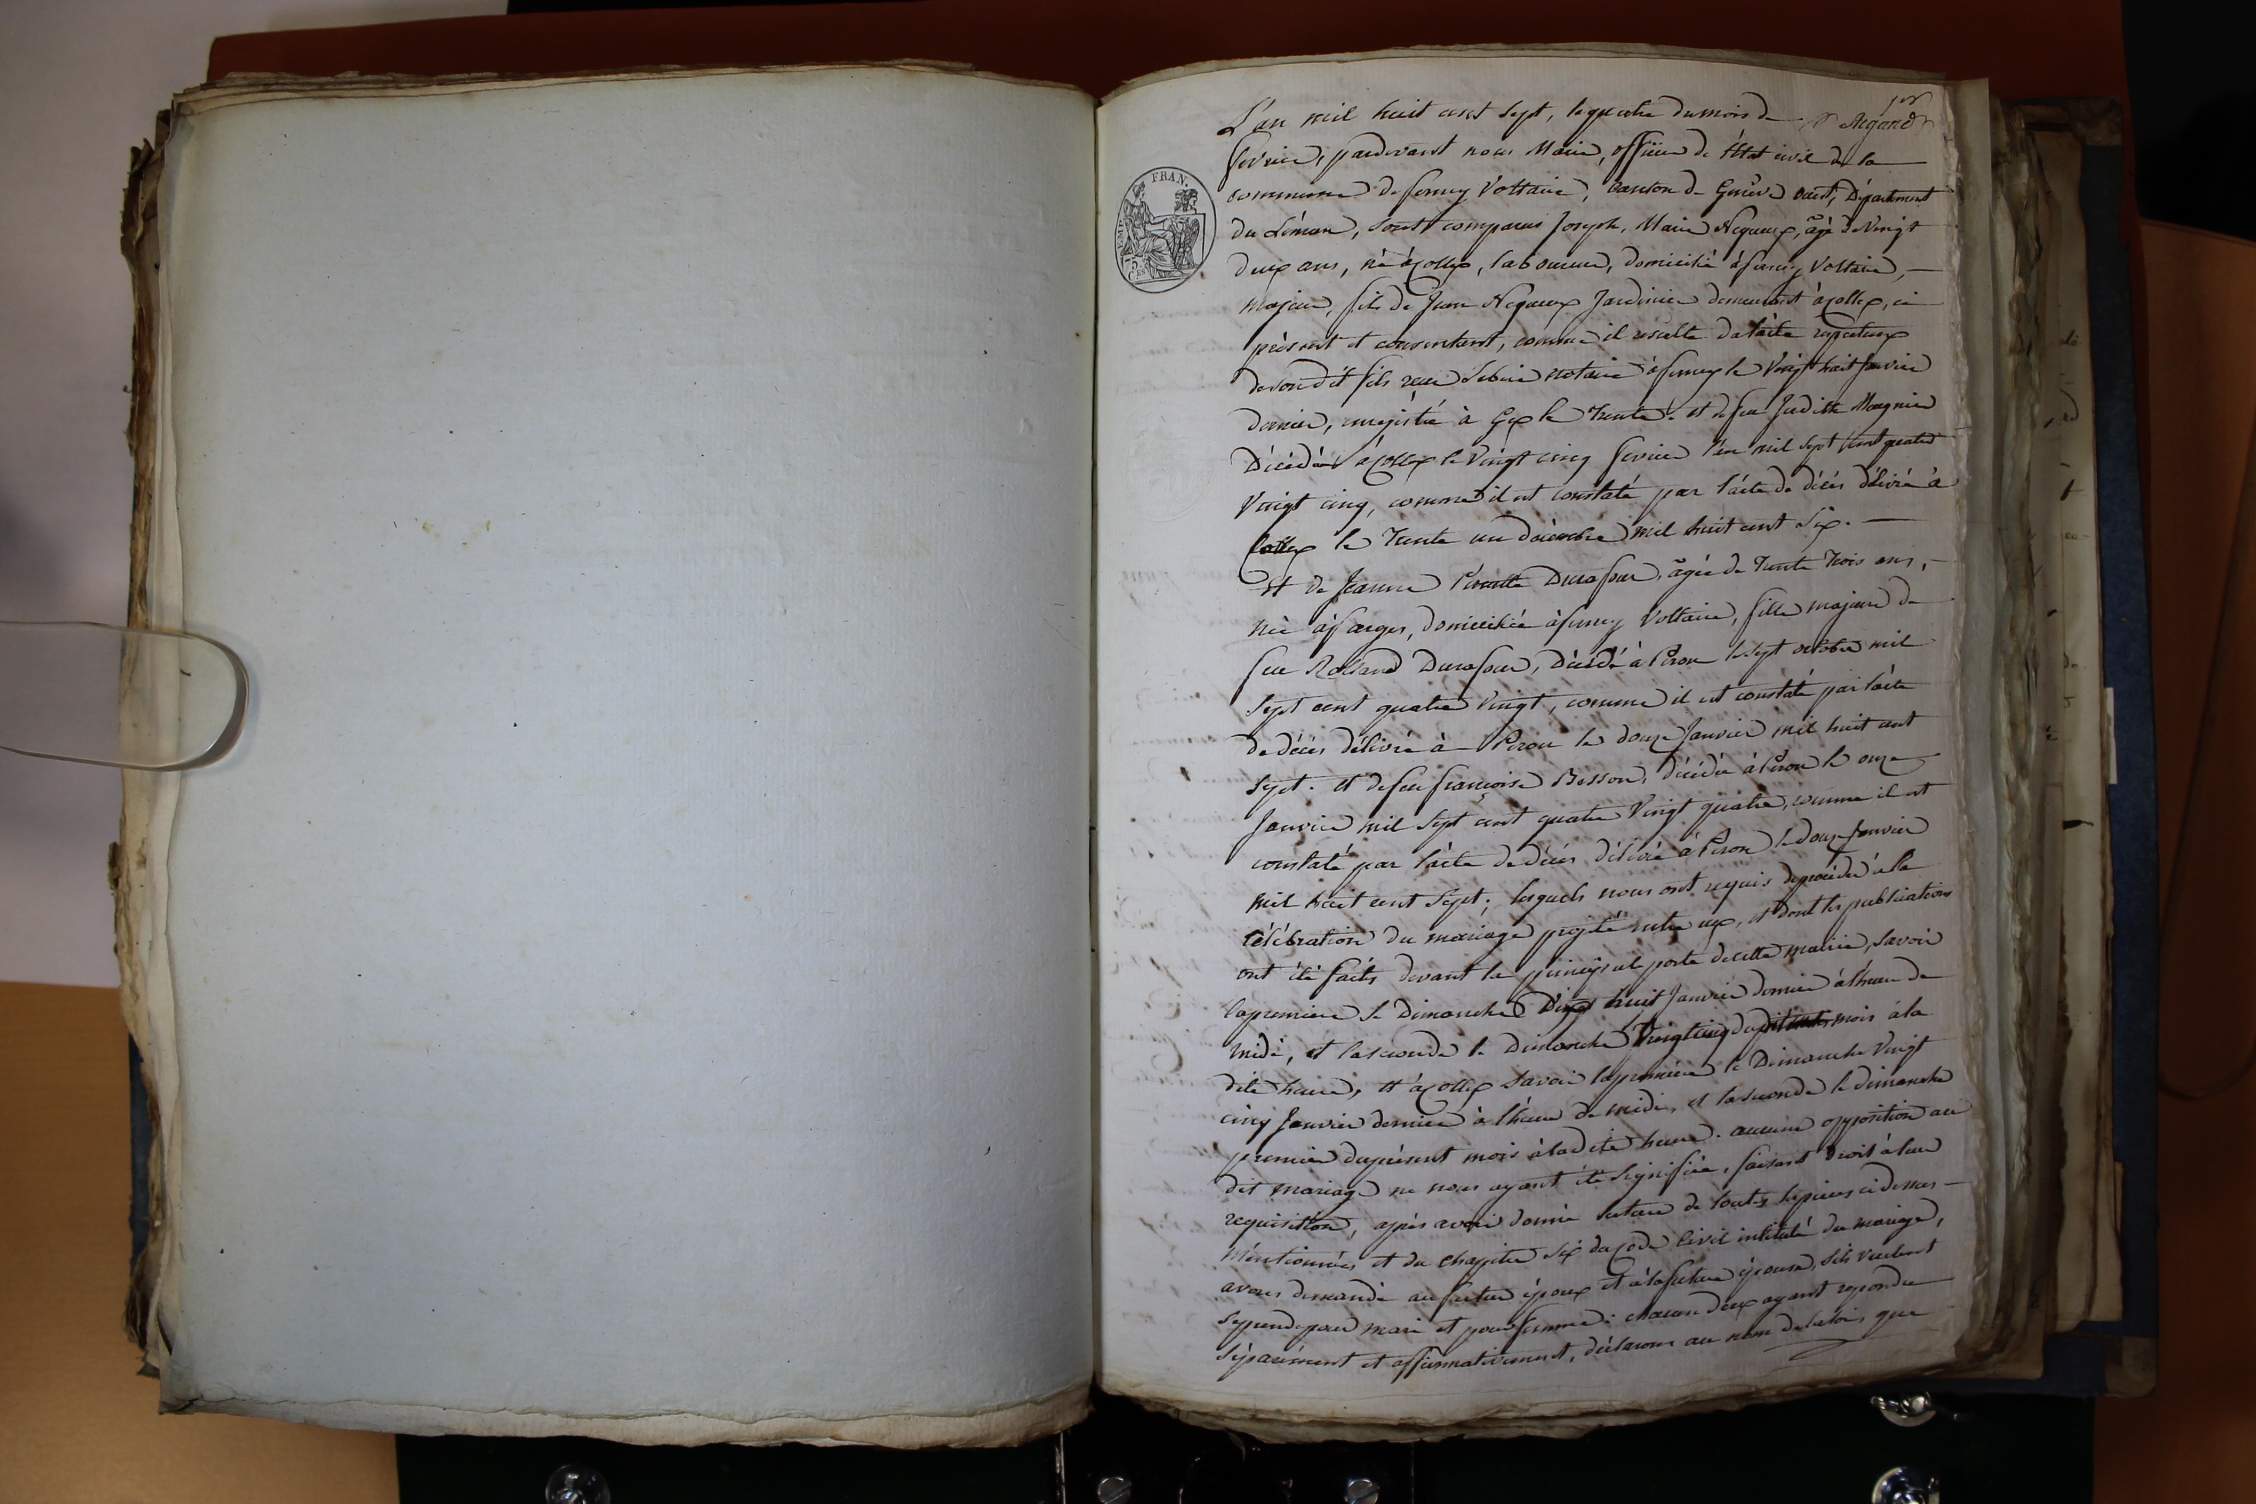 L'an mil huit cent sept, le quatre du mois de
fevrier, pardevant nous Maire, officier de l'état civil de la
commune de ferney Voltaire, canton de Genève ouest, Département
FRAN.
du Léman, sont comparus Joseph, Marie Nequeux, âgé de Vingt
deux ans, né à Collex, laboureur, domicilié à ferney Voltaire,
majeur, fils de Jean Nequeux Jardinier demeurant à Collex, ci
présent et consentant, comme il résulte de l'acte
de son dit fils notaire à ferney le Vingt huit Janvier
dernier, enregistré à Gex le trente. et de feu Judith Magnin
Décédée à Collex le Vingt cinq fevrier l'an mil sept cent quatre
Vingt cinq, comme il est constaté par l'acte de décès délivré à
Collex le Trente un décembre mil huit cent Six.
Et de Jeanne Pernette Durafour, âgée de Trente trois ans,
née à farges, domiciliée à ferney Voltaire, fille majeure de
feu Rolland Durafour, Décédé à Péron le sept octobre mil
sept cent quatre Vingt, comme il est constaté par l'acte
de décès délivré à Péron le douze Janvier mil huit cent
sept. et de feu françoise Besson, décédée à Péron le onze
Janvier mil sept cent quatre Vingt quatre, comme il est
constaté par l'acte de décès délivré à Péron le douze Janvier
mil huit cent sept; lesquels nous ont requis de procéder à la
célébration du mariage projeté entre eux, et dont les publications
ont été faites devant la principale porte de cette mairie, savoir
la premiere le Dimanche huit Janvier dernier à l'heure de
midi, et la seconde le Dimanche Vingt cinq du mois à la
dite heure, et à Collex savoir la première le Dimanche Vingt
cinq Janvier dernier à l'heure de midi, et la seconde le dimanche
premier du présent mois à la dite heure. aucune opposition au
dit mariage ne nous ayant été signifiée, faisant droit à leur
requisition, après avoir donné lecture de toutes les pièces ci dessus
mentionnées et du chapitre six du Code Civil intitulé du mariage,
avons demandé au futur époux et à la future épouse, s'ils veulent
se prendre pour mari et pour femme: chacun d'eux ayant répondu
séparément et affirmativement, déclarons au nom de la loi, que